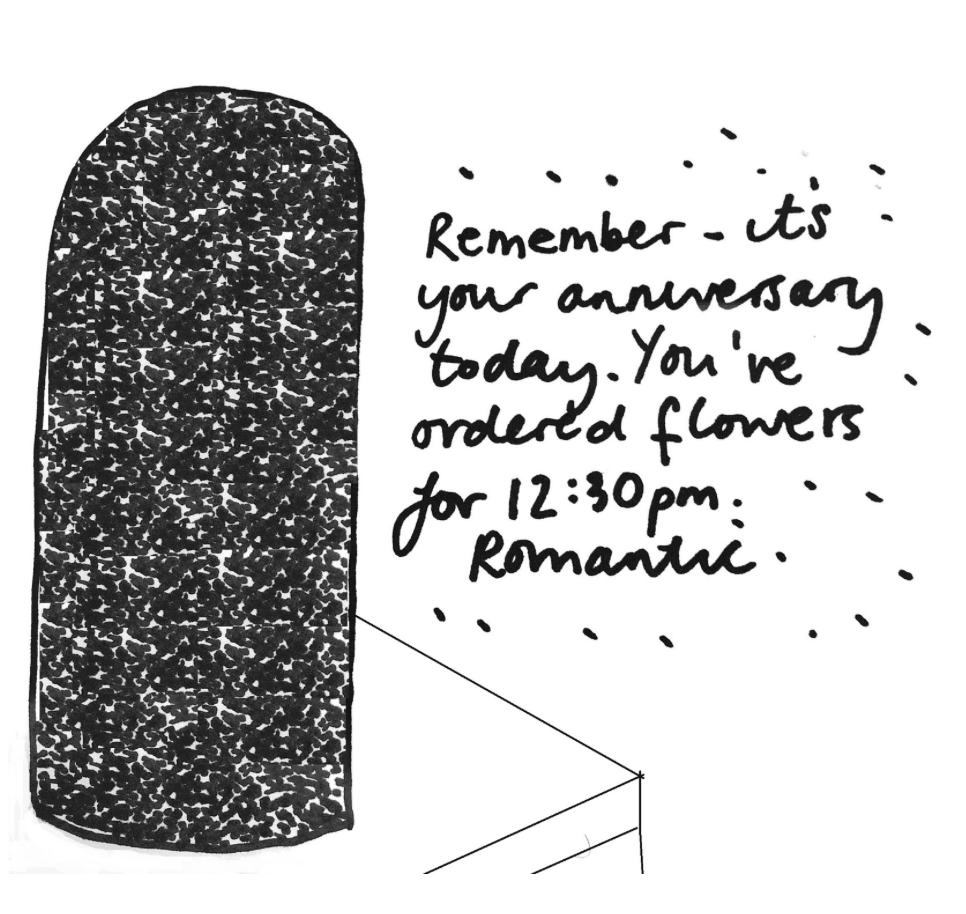 Remember - it's
your anniversary
today. You've
ordered flowers
for 12:30pm.
Romantic.